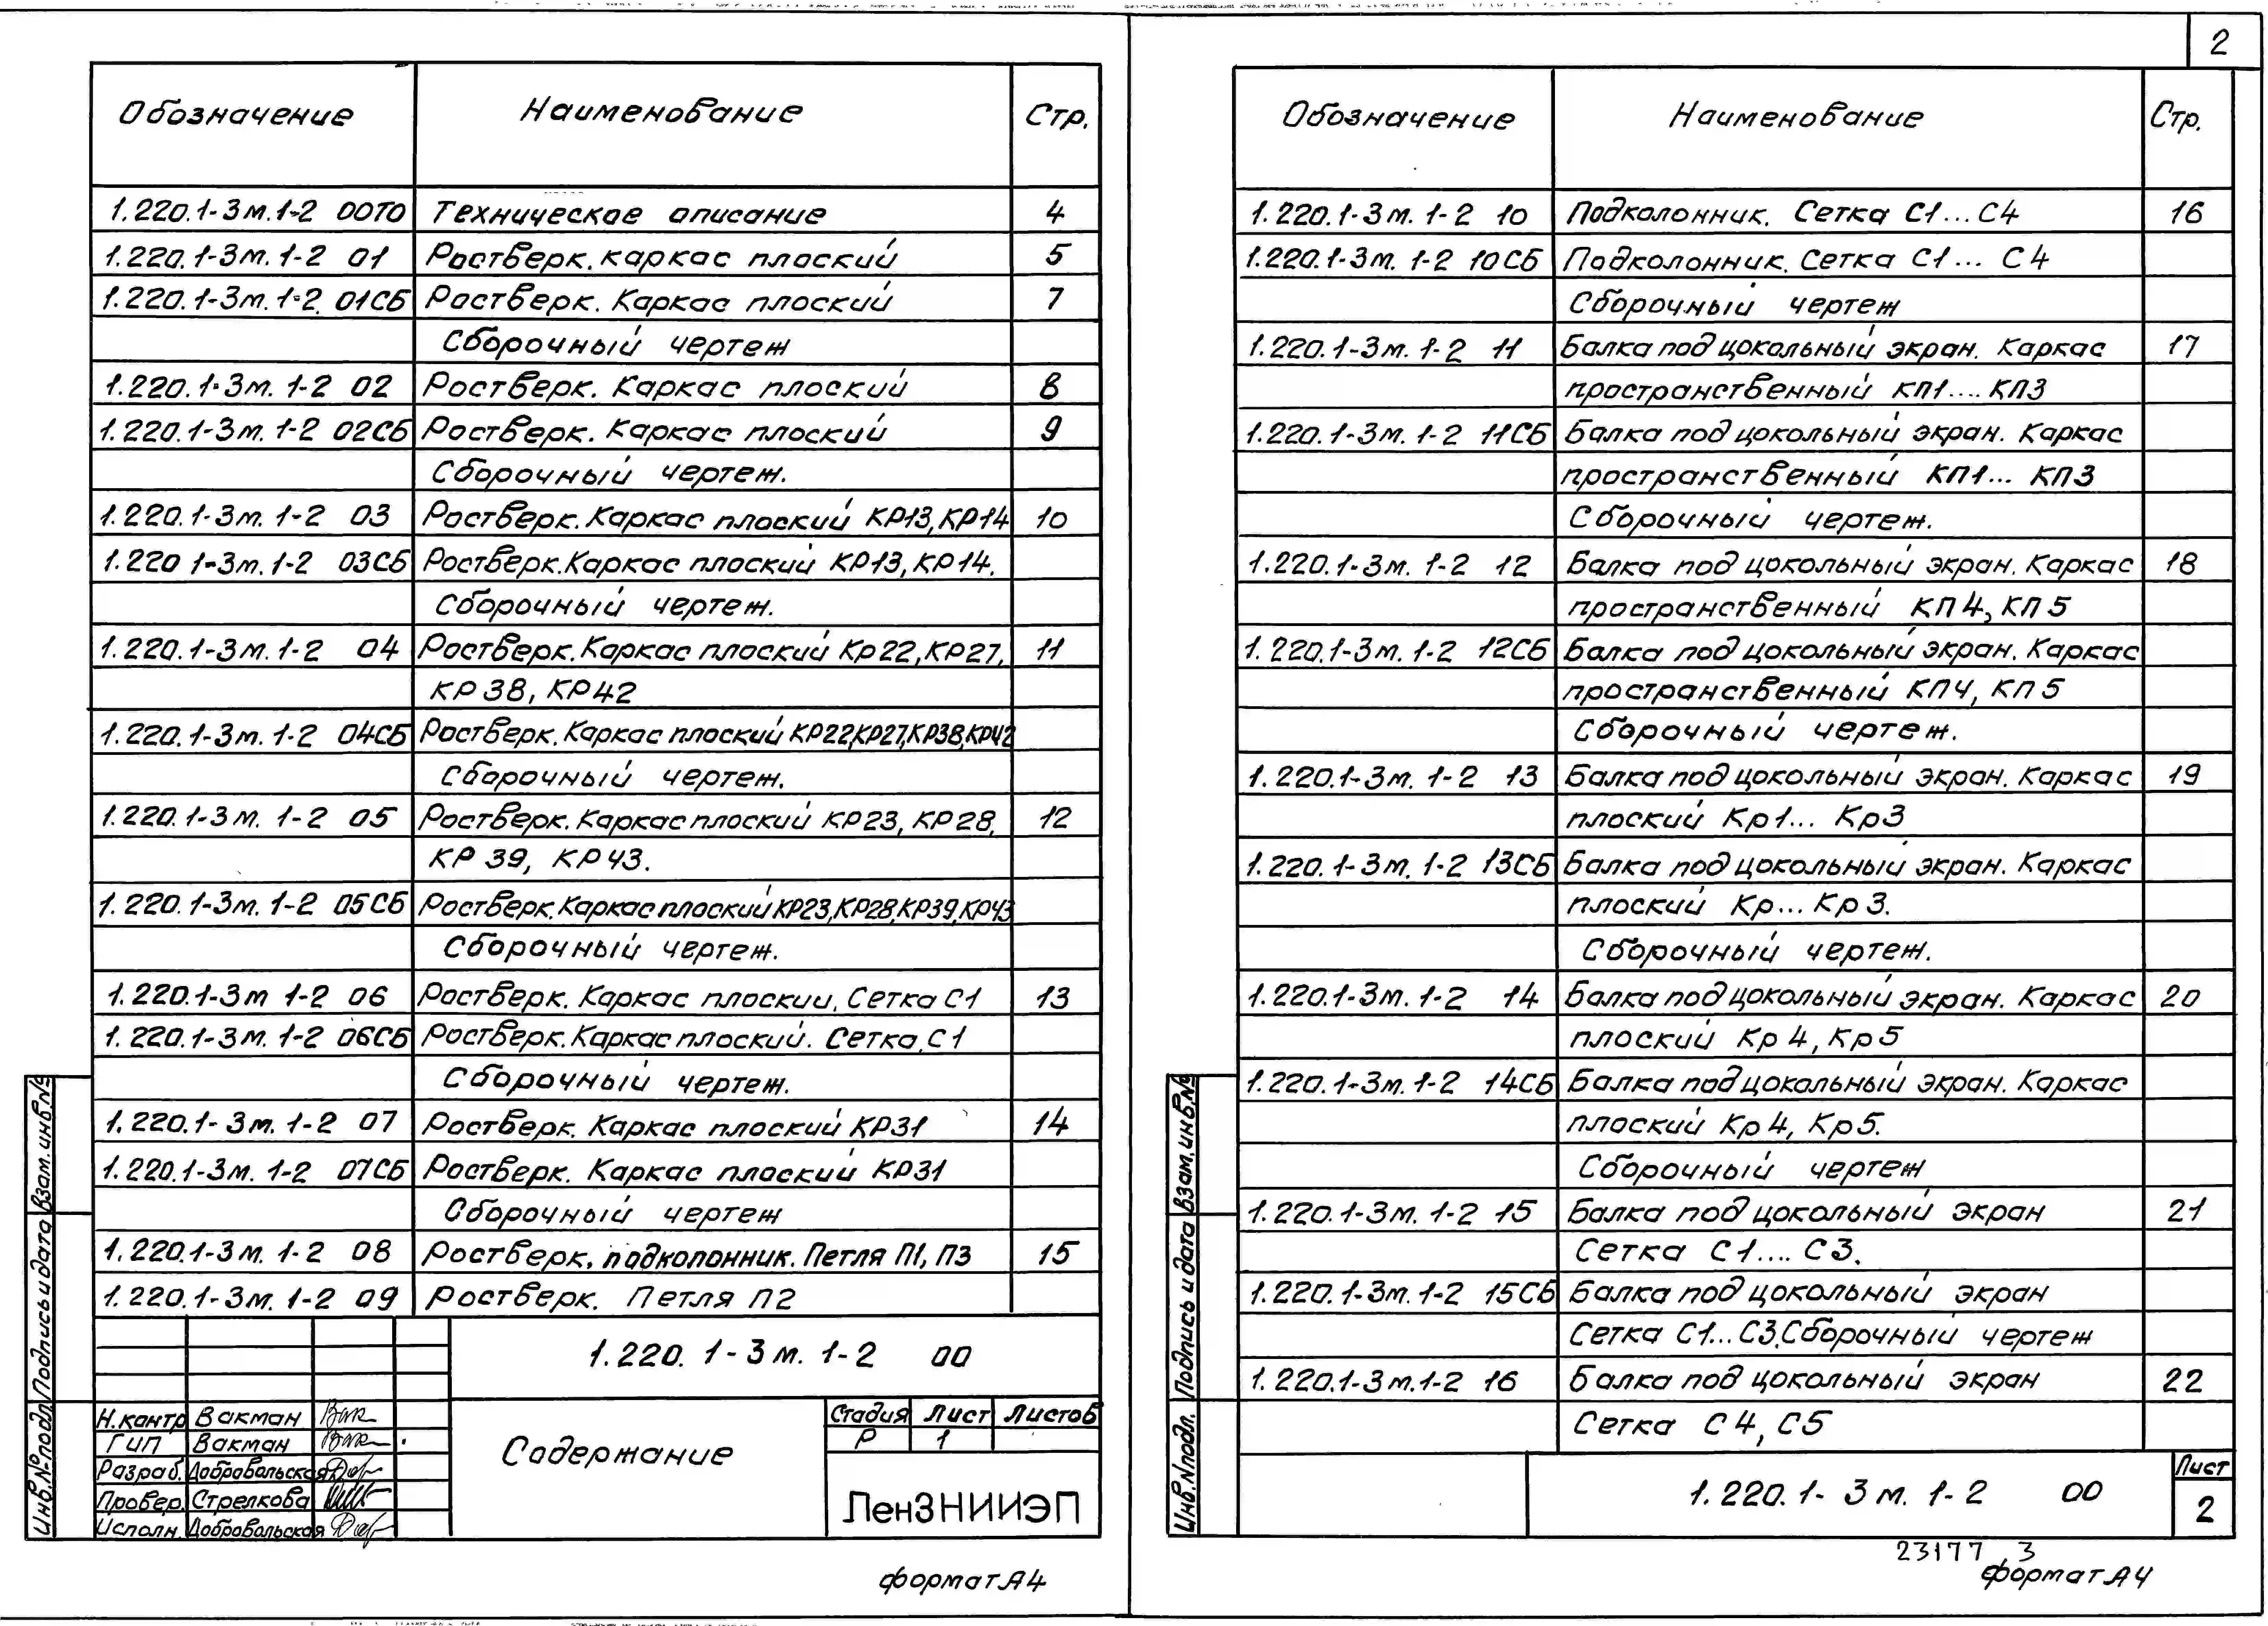 Обозначение Наименование Стр.
1.220.1-3м.1-2 00ТО Техническое описание 4
1.220.1-3м.1-2 01 Ростверк. каркас плоский 5
1.220.1-3м.1-2. 01СБ Ростверк. Каркас плоский 7
Сборочный чертеж
1.220.1-3м.1-2 02 Ростверк. Каркас плоский 8
1.220.1-3м.1-2 02СБ Ростверк. Каркас плоский 9
Сборочный чертеж.
1.220.1-3м.1-2 03 Ростверк. Каркас плоский КР13, КР14 10
1.220 1-3м.1-2 03СБ Ростверк. Каркас плоский КР13, КР14.
Сборочный чертеж.
1.220.1-3м.1-2 04 Ростверк. Каркас плоский Кр22, КР27, 11
КР38, КР42
1.220.1-3м.1-2 04СБ Ростверк. Каркас плоский КР22,КР27,КР38,КР42
Сборочный чертеж.
1.220.1-3м.1-2 05 Ростверк. Каркас плоский КР23, КР28, 12
КР39, КР43.
1.220.1-3м.1-2 05СБ Ростверк. Каркас плоский КР23,КР28,КР39,КР43
Сборочный чертеж.
1.220.1-3м 1-2 06 Ростверк. Каркас плоский. Сетка С1 13
1.220.1-3м.1-2 06СБ Ростверк. Каркас плоский. Сетка С1
Сборочный чертеж.
1.220.1-3м.1-2 07 Ростверк. Каркас плоский КР31 14
1.220.1-3м.1-2 07СБ Ростверк. Каркас плоский КР31
Сборочный чертеж
1.220.1-3м.1-2 08 Ростверк, подколонник. Петля П1, П3 15
1.220.1-3м.1-2 09 Ростверк. Петля П2
1.220.1-3м.1-2 00
Н.контр Вакман
ГИП Вакман
Разраб. Добровольская
Провер. Стрелкова
Исполн. Добровольская
Содержание
Стадия Лист Листов
Р 1
ЛенЗНИИЭП
Взам.инв.№
Подпись и дата
Инв.№подл
формат А4
2
Обозначение Наименование Стр.
1.220.1-3м.1-2 10 Подколонник. Сетка С1...С4 16
1.220.1-3м.1-2 10СБ Подколонник. Сетка С1... С4
Сборочный чертеж
1.220.1-3м.1-2 11 Балка под цокольный экран. Каркас 17
пространственный КП1....КП3
1.220.1-3м.1-2 11СБ Балка под цокольный экран. Каркас
пространственный КП1... КП3
Сборочный чертеж.
1.220.1-3м.1-2 12 Балка под цокольный экран. Каркас 18
пространственный КП4, КП5
1.220.1-3м.1-2 12СБ Балка под цокольный экран. Каркас
пространственный КП4, КП5
Сборочный чертеж.
1.220.1-3м.1-2 13 Балка под цокольный экран. Каркас 19
плоский Кр1... Кр3
1.220.1-3м.1-2 13СБ Балка под цокольный экран. Каркас
плоский Кр... Кр3.
Сборочный чертеж.
1.220.1-3м.1-2 14 Балка под цокольный экран. Каркас 20
плоский Кр4, Кр5
1.220.1-3м.1-2 14СБ Балка под цокольный экран. Каркас
плоский Кр4, Кр5.
Сборочный чертеж
1.220.1-3м.1-2 15 Балка под цокольный экран 21
Сетка С1.... С3.
1.220.1-3м.1-2 15СБ Балка под цокольный экран
Сетка С1...С3. Сборочный чертеж
1.220.1-3м.1-2 16 Балка под цокольный экран 22
Сетка С4, С5
1.220.1-3м.1-2 00
Лист
2
Взам.инв.№
Подпись и дата
Инв.N подл.
23177 3
формат А4